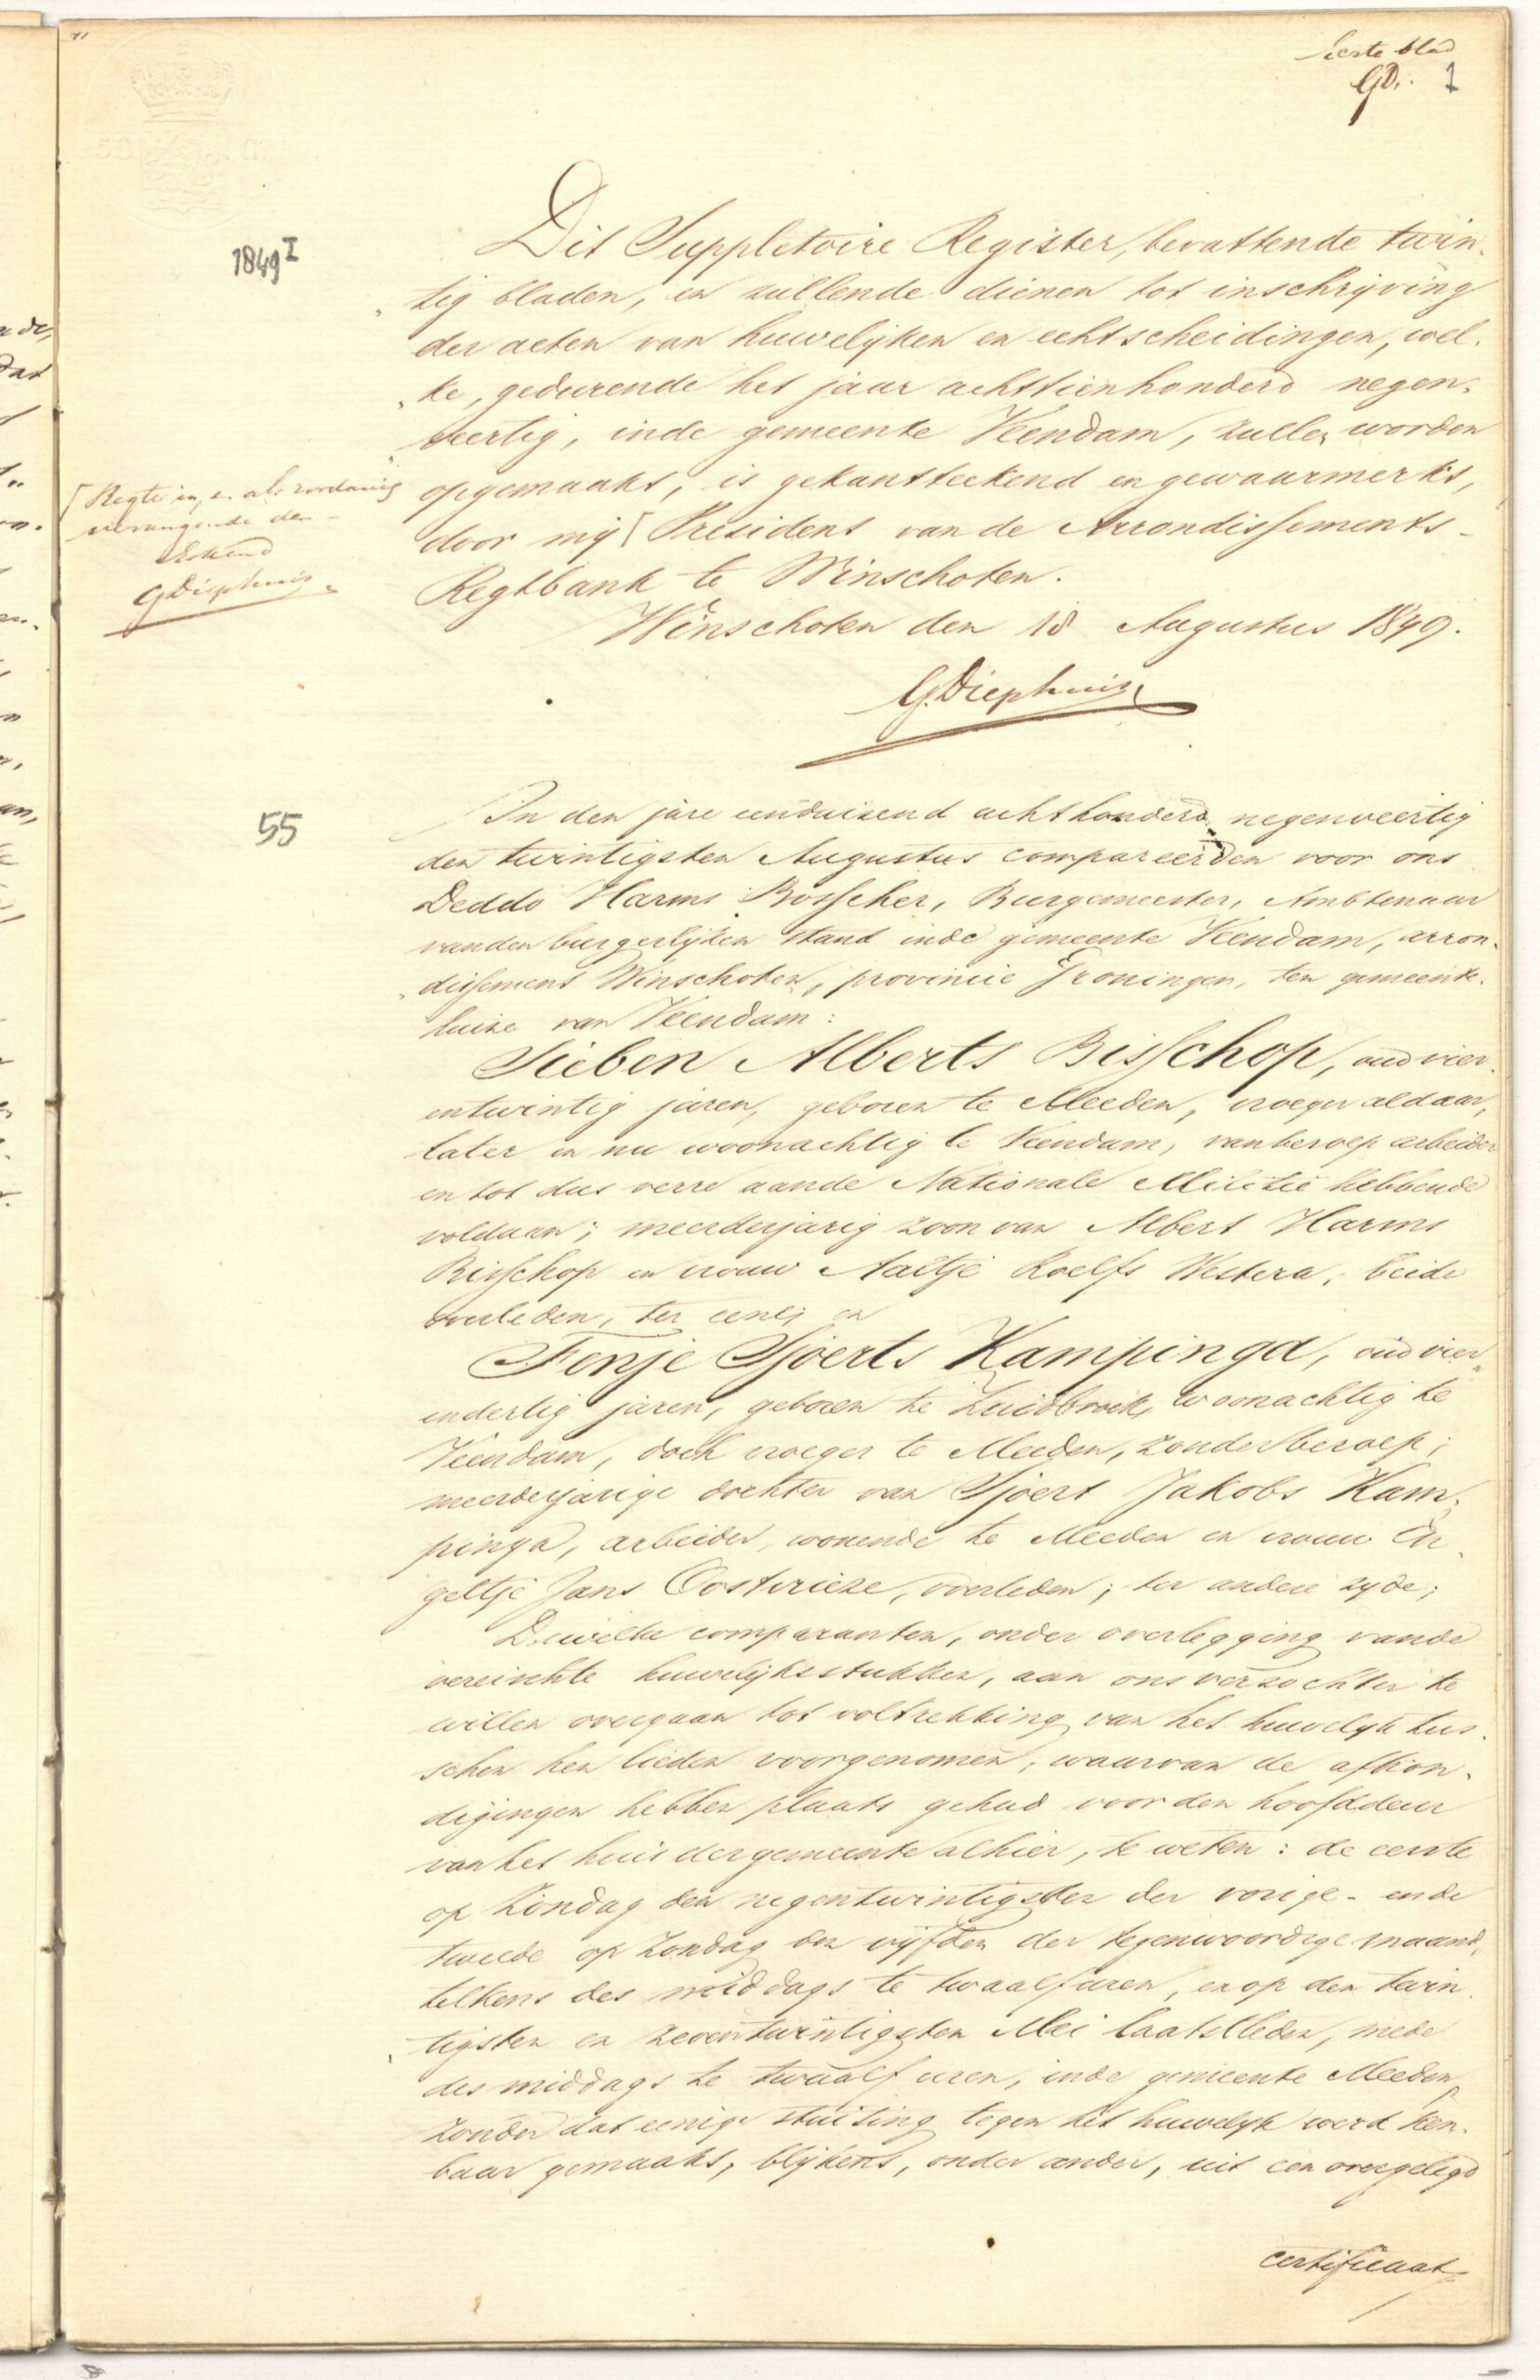 Eerste blad
GD. 1
1849 I
Dit Suppletoire Register, bevattende twin-
tig bladen, en zullende dienen tot inschrijving
der acten van huwelijken en echtscheidingen, wel-
ke, gedurende het jaar achttienhonderd negen-
veertig, inde gemeente Veendam, zullen worden
opgemaakt, is gekantteekend en gewaarmerkt,
door mij [ President van de Arrondissements-
Regtbank te Winschoten.
Winschoten den 18 Augustus 1849.
GDiephuis
[ Regter in, en als zoodanig
vervangende den
Erkend
GDiephuis
55
In den jare eenduizend achthonderd negenveertig
den twintigsten Augustus compareerden voor ons
Deddo Harms Bosscher, Burgemeester, Ambtenaar
vanden burgerlijken stand inde gemeente Veendam, arron-
dissement Winschoten, provincie Groningen, ten gemeente-
huize van Veendam:
Sieben Alberts Bisschop, oud vier-
entwintig jaren, geboren te Meeden, vroeger aldaar,
later en nu woonachtig te Veendam, van beroep arbeider
en tot dus verre aande Nationale Militie hebbende
voldaan; meerderjarig zoon van Albert Harms
Bisschop en vrouw Aaltje Roelfs Westera, beide
overleden, ter eene; en
Fenje Sjoerts Kampinga, oud vier-
endertig jaren, geboren te Zuidbroek, woonachtig te
Veendam, doch vroeger te Meeden, zonder beroep;
meerderjarige dochter van Sjoert Jakobs Kam-
pinga, arbeider, wonende te Meeden en vrouw En-
geltje Jans Oostvrieze, overleden; ter andere zyde;
Dewelke comparanten, onder overlegging vande
vereischte huwelijksstukken, aan ons verzochten te
willen overgaan tot voltrekking van het huwelyk tus-
schen hen lieden voorgenomen, waarvan de afkon-
digingen hebben plaats gehad voor den hoofddeur
van het huis der gemeente alhier, te weten: de eerste
op Zondag den negentwintigsten der vorige- en de
tweede op Zondag den vyfden der tegenwoordige maand,
telkens des middags te twaalf uren, en op den twin-
tigsten en zeventwintigsten Mei laatstleden, mede
des middags te twaalf uren, inde gemeente Meeden,
zonder dat eenige stuiting tegen het huwelyk werd ken-
baar gemaakt, blijkens, onder ander, uit een overgelegd
certificaat